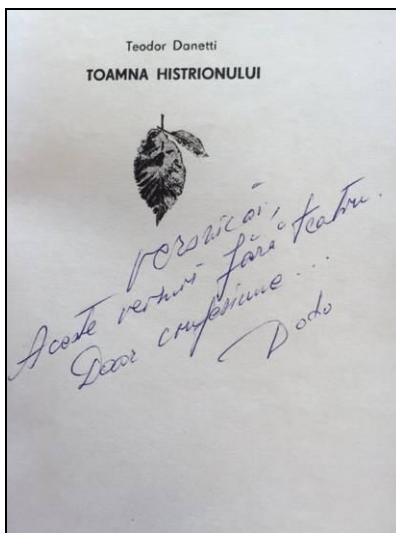 Teodor Danetti
TOAMNA HISTRIONULUI
Veronicăi,
Aceste versuri fără teatru.
Doar confesiune...
Dodo